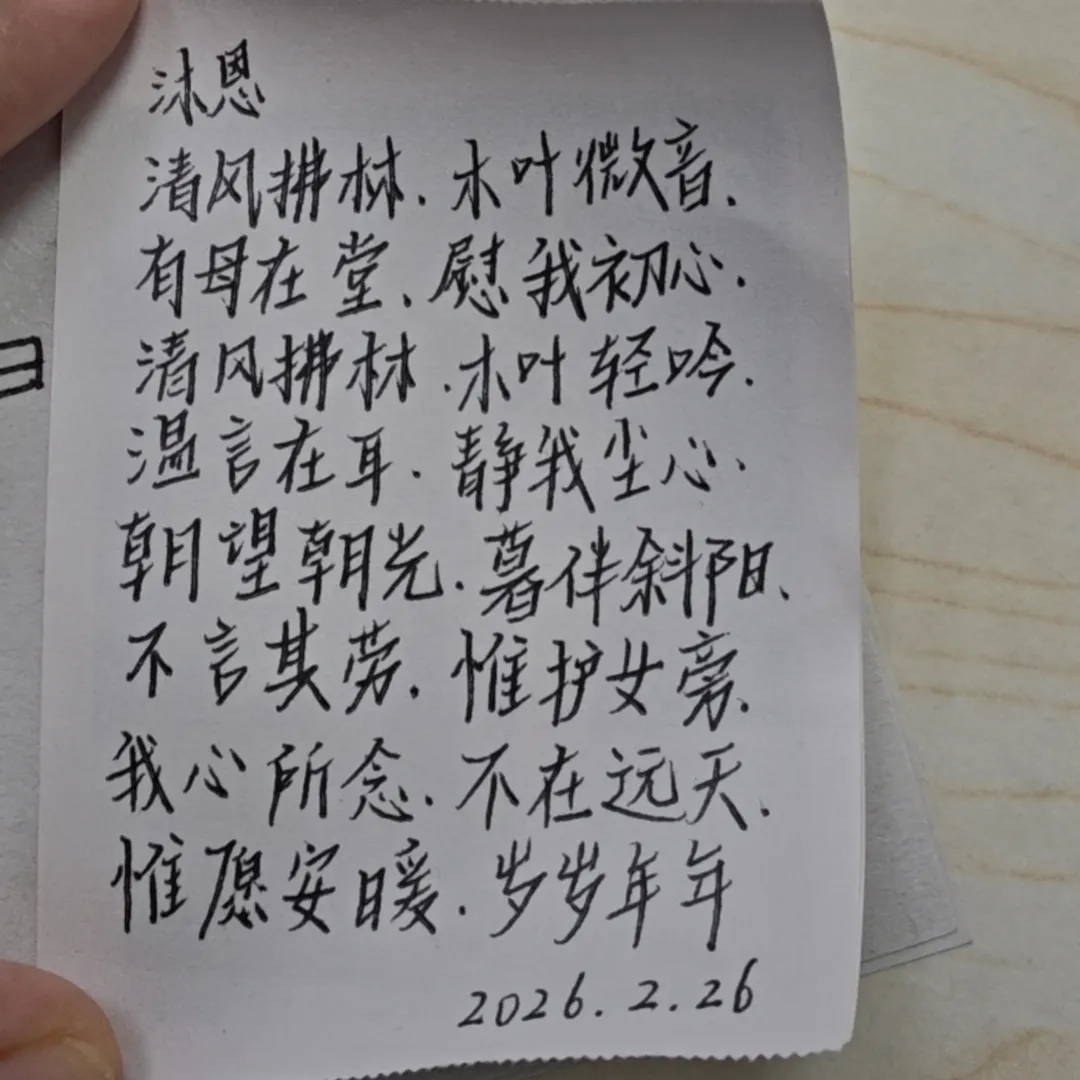 沐恩
清风拂林.木叶微音.
有母在堂、慰我初心.
清风拂林.木叶轻吟.
温言在耳.静我尘心.
朝望朝光.暮伴斜阳、
不言其劳.惟护女旁.
我心所念.不在远天.
惟愿安暖.岁岁年年
2026.2.26